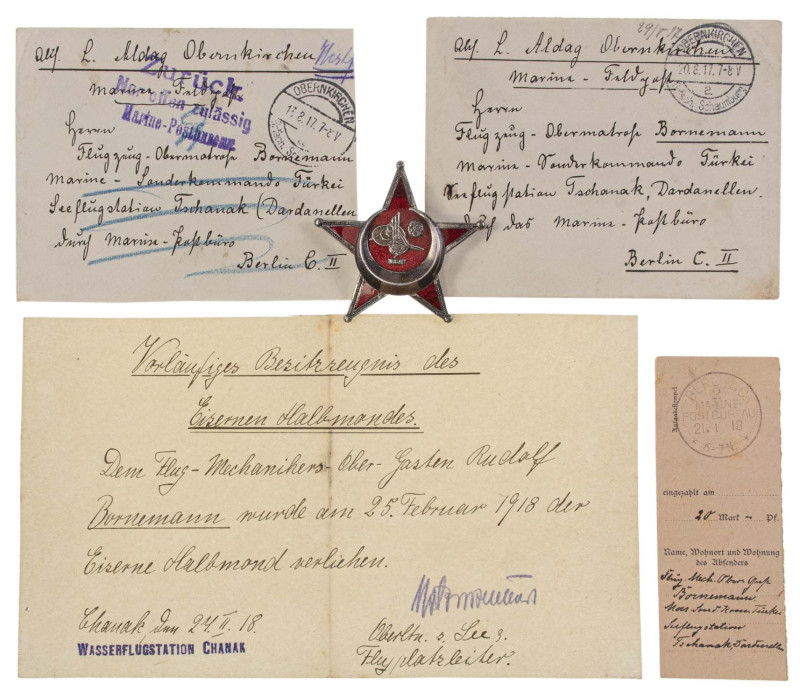 Abs. L. Aldag Obernkirchen
Zurück.
Marine-Feldpost
Nur offen zulässig
Marine-Postbureau
OBERNKIRCHEN
8.17.7-8V
Herrn
Flugzeug-Obermatrose Bornemann
Marine-Sonderkommando Türkei
Seeflugstation Tschanak (Dardanellen
durch Marine-Postbüro
Berlin C. II
Abs. L. Aldag Obernkirchen
Marine-Feldpost
OBERNKIRCHEN
20.8.17.7-8V
a
Herrn
Flugzeug-Obermatrose Bornemann
Marine-Sonderkommando Türkei
Seeflugstation Tschanak, Dardanellen.
durch das Marine-Postbüro
Berlin C. II
Vorläufiges Besitzzeugnis des
Eisernen Halbmondes.
Dem Flug-Mechanikers-Ober-Gasten Rudolf
Bornemann wurde am 25. Februar 1918 der
Eiserne Halbmond verliehen.
Chanak, den 24. II. 18.
WASSERFLUGSTATION CHANAK
Oberltn. z. See &
Flugplatzleiter.
MARINE
POSTBUREAU
21. 1 18
6-7N.
eingezahlt am
20 Mark - Pf.
Name, Wohnort und Wohnung
des Absenders
Flug. Mech. Ober Gast
Bornemann
Mar. Sond. Kom. Türkei
Seeflugstation
Tschanak, Dardanellen